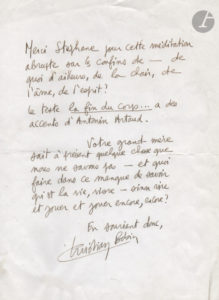 Merci Stéphane pour cette méditation
abrupte sur les confins de — de
quoi d'ailleurs, de la chair, de
l'âme, de l'esprit?
Le texte la fin du corps... a des
accents d'Antonin Artaud.
Votre grand mère
sait à présent quelque chose que
nous ne savons pas — et quoi
faire dans ce manque de savoir
qu'est la vie, vivre — sinon rire
et jouer et jouer encore, encore?
En souriant donc,
Christian Bobin